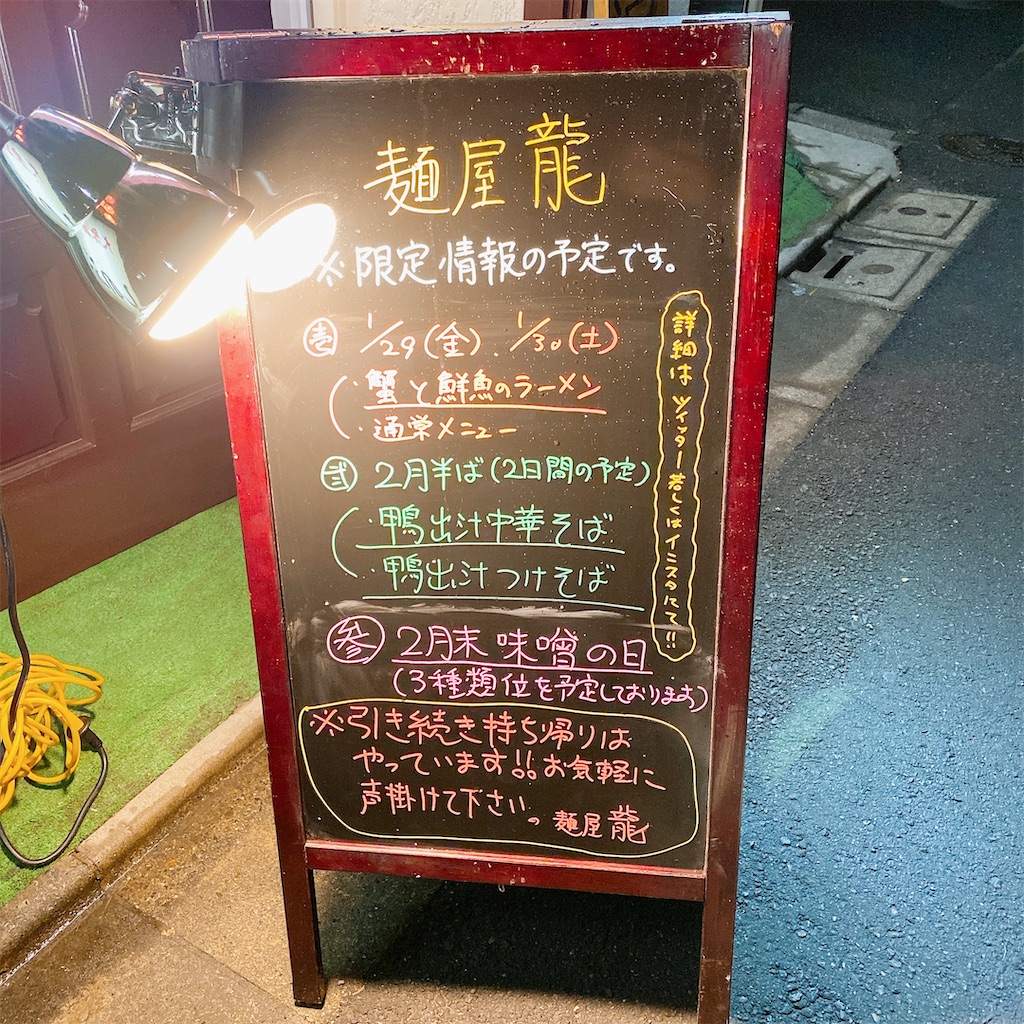 麺屋 龍
※限定情報の予定です。
壱 1/29(金)、1/30(土)
・蟹と鮮魚のラーメン
・通常メニュー
弐 2月半ば(2日間の予定)
・鴨出汁中華そば
・鴨出汁つけそば
参 2月末 味噌の日
(3種類位を予定しております)
詳細はツイッター若しくはインスタにて!!
※引き続き持ち帰りは
やっています!!お気軽に
声掛けて下さい。麺屋 龍